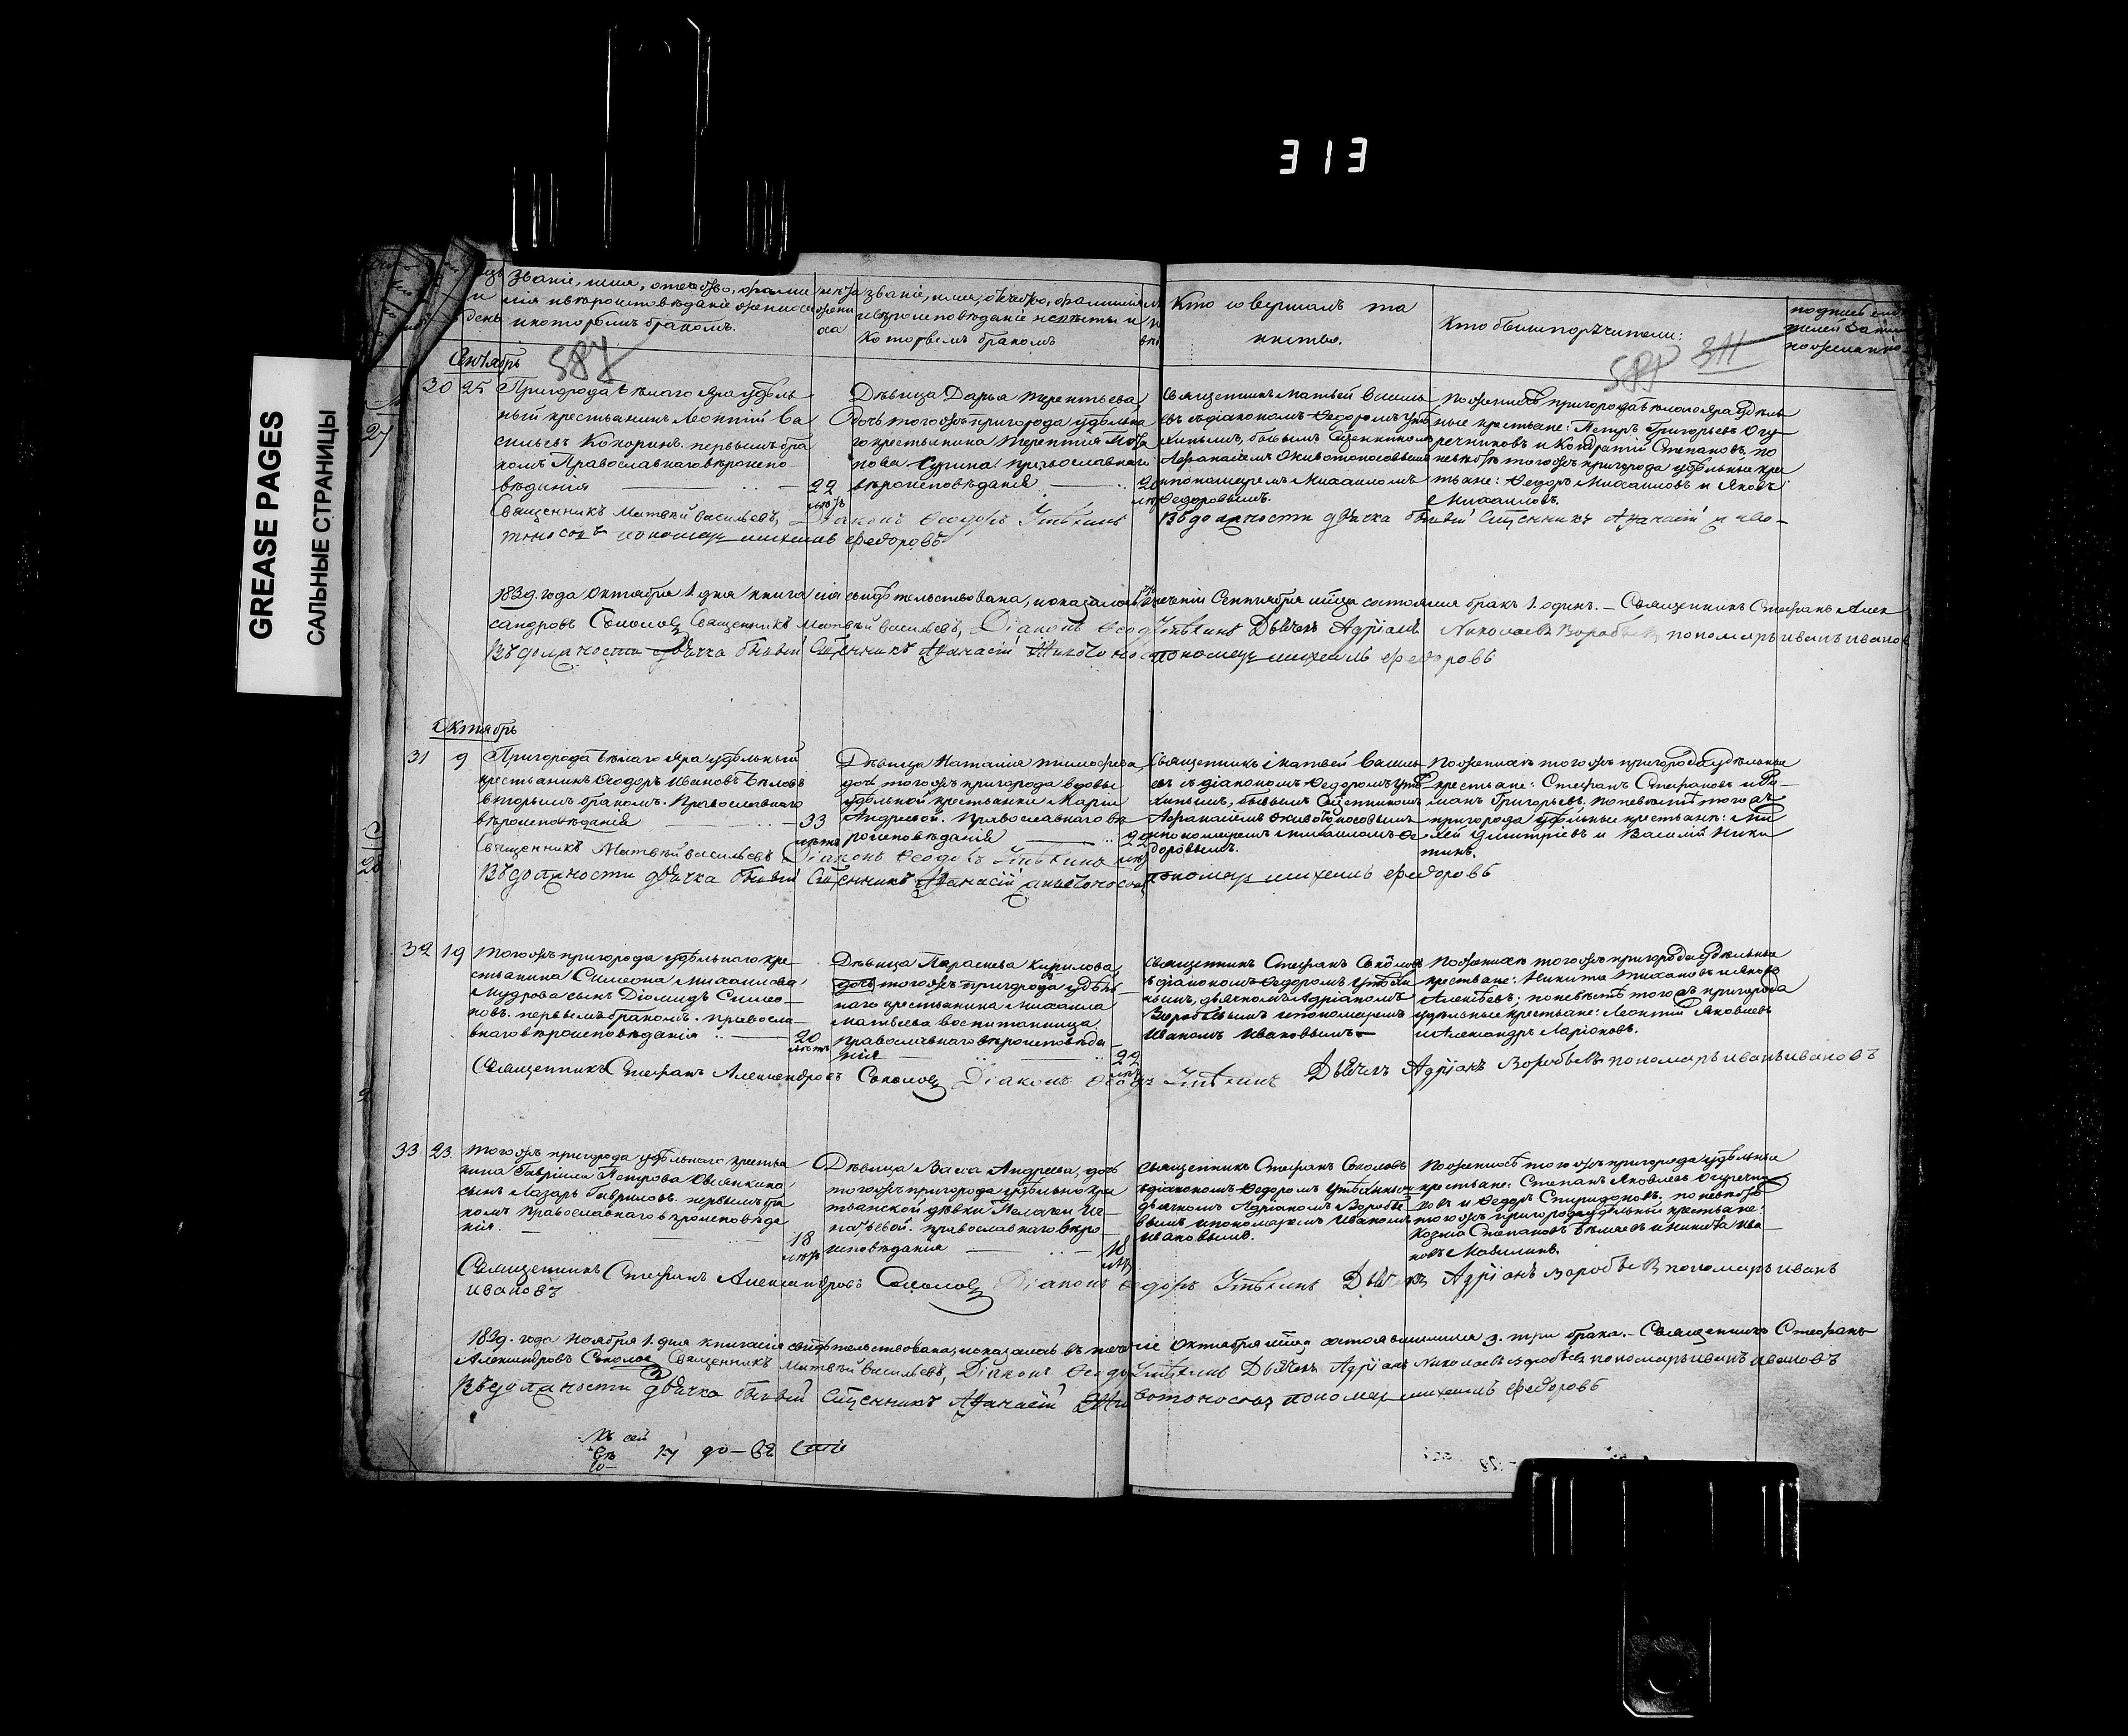 313
GREASE PAGES
САЛЬНЫЕ СТРАНИЦЫ
Званіе, имя, отечество, фами
лія и вѣроисповѣданіе жениха
и которымъ бракомъ.
лѣта
жени
ха
Званіе, имя, отечество, фамилія
и вѣроисповѣданіе невѣсты и
которымъ бракомъ
Кто совершалъ та
инства.
Кто были поручители:
587
311
Сентябрь
587
30 25
Пригорода Бѣлаго Яра удѣль
ный крестьянинъ Леонтій Ва
сильевъ Кокоринъ. первымъ бра
комъ Православнаго вѣроиспо
вѣданія
22
лѣтъ
Дѣвица Дарья Терентьева,
дочь тогожъ пригорода удѣльна
го крестьянина Терентія
православнаго
вѣроисповѣданія
20
Священникъ Матвей Василь
евъ съ діакономъ Ѳедоромъ Утѣ
хинымъ, бывшимъ Священникомъ
Аѳанасіемъ Животоносовымъ
и пономаремъ Михаиломъ
Ѳедоровымъ.
По женихѣ пригорода Бѣлаго Яра удѣль
ные крестьяне: Петръ Григорьевъ Огу
речниковъ и Кондратій Степановъ, по
невѣстѣ тогожъ пригорода удѣльные кре
стьяне: Ѳедоръ Михаиловъ и Яковъ
Михаиловъ.
Священникъ Матвѣй Васильевъ, Діаконъ Ѳеодоръ Утѣхинъ
Въ должности дьячка бывый Священникъ Аѳанасій Живо-
тоносовъ пономарь михаилъ федоровъ
1839. года Октября 1. дня книга сія свидѣтельствована, показалось въ теченіи Сентября мѣсяца состоялся бракъ 1. одинъ. – Священникъ Стефанъ Алек
сандровъ Соколовъ Священникъ Матвѣй Васильевъ, Діаконъ Ѳеодоръ Утѣхинъ Дьячекъ Адріанъ Николаевъ Воробьевъ пономарь иванъ иванов
Въ должности дьячка бывый Священникъ Аѳанасій Животоносовъ пономарь михаилъ федоровъ
Октябрь
31 9
Пригорода Бѣлаго Яра удѣльный
крестьянинъ Ѳеодоръ Ивановъ Бѣловъ
вторымъ бракомъ. Православнаго
вѣроисповѣданія
33
лѣтъ
Дѣвица Наталія Тимофеева,
дочь тогожъ пригорода вдовы
удѣльной крестьянки Маріи
Андреевой. Православнаго вѣ
роисповѣданія
22
Священникъ Матвей Василь
евъ съ діакономъ Ѳедоромъ Утѣ
хинымъ, бывшимъ Священникомъ
Аѳанасіемъ Животоносовымъ
и пономаремъ Михаиломъ Ѳе
доровымъ.
По женихѣ тогожъ пригорода удѣльные
крестьяне: Стефанъ Стефановъ и Ро
манъ Григорьевъ, по невѣстѣ тогожъ
пригорода удѣльные крестьяне:
Димитріевъ и Василій Ники
тинъ.
Священникъ Матвѣй Васильевъ Діаконъ Ѳеодоръ Утѣхинъ
Въ должности дьячка бывый Священникъ Аѳанасій Животоносовъ пономарь михаилъ федоровъ
32 19
Тогожъ пригорода удѣльнаго кре
стьянина Симеона Михаилова
Мудрова сынъ Діомидъ Симео
новъ. первымъ бракомъ. правосла
внаго вѣроисповѣданія
20
лѣтъ
Дѣвица Параскева Кирилова,
дочь тогожъ пригорода удѣль
наго крестьянина Михаила
Матвѣева воспитанница
Православнаго вѣроисповѣда
нія
22
Священникъ Стефанъ Соколовъ
съ діакономъ Ѳедоромъ Утѣхи
нымъ, дьячкомъ Адріаномъ
Воробьевымъ и пономаремъ
Иваномъ Ивановымъ
По женихѣ тогожъ пригорода удѣльные
крестьяне: Никита Тихановъ и Яковъ
Алексѣевъ; по невѣстѣ тогожъ пригорода
удѣльные крестьяне: Леонтій Яковлевъ
и Александръ Ларіоновъ.
Священникъ Стефанъ Александровъ Соколовъ Діаконъ Ѳеодоръ Утѣхинъ Дьячекъ Адріанъ Воробьевъ пономарь иванъ ивановъ
33 23.
Тогожъ пригорода удѣльнаго крестья
нина Гавріила Петрова Овсянкина
сынъ Лазарь Гавриловъ. первымъ бра
комъ Православнаго вѣроисповѣда
нія.
18
лѣтъ
Дѣвица Васса Андреева, дочь
тогожъ пригорода удѣльной кре
стьянской дѣвки Пелагеи Иг
натьевой. православнаго вѣро
исповѣданія
18
Священникъ Стефанъ Соколовъ
съ діакономъ Ѳедоромъ Утѣхинымъ
дьячкомъ Адріаномъ Воробье
вымъ и пономаремъ Иваномъ
Ивановымъ.
По женихѣ тогожъ пригорода удѣльные
крестьяне: Степанъ Яковлевъ Огуречни
ковъ и Ѳедоръ Спиридоновъ. по невѣстѣ
тогожъ пригорода удѣльные крестьяне:
Козма Степановъ Бѣляевъ и Никита Ива
новъ
Священникъ Стефанъ Александровъ Соколовъ Діаконъ Ѳеодоръ Утѣхинъ Дьячекъ Адріанъ Воробьевъ пономарь иванъ
ивановъ
1839. года Ноября 1. дня книга сія свидѣтельствована, показалось въ теченіе Октября мѣсяца состоявшимися 3. три брака. – Священникъ Стефанъ
Александровъ Соколовъ Священникъ Матвѣй Васильевъ, Діаконъ Ѳеодоръ Утѣхинъ Дьячекъ Адріанъ Николаевъ Воробьевъ пономарь иванъ ивановъ
Въ должности дьячка бывый Священникъ Аѳанасій Животоносовъ пономарь михаилъ федоровъ